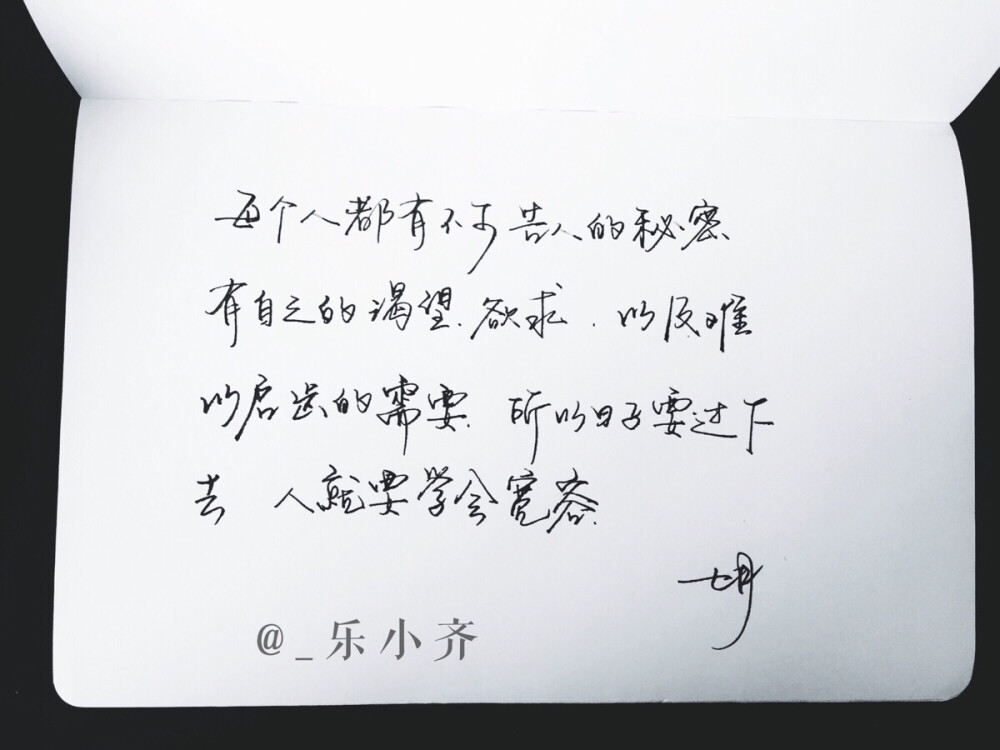 每个人都有不可告人的秘密
有自己的渴望、欲求、以及难
以启齿的需要、所以日子要过下
去 人就要学会宽容、
@_乐小齐